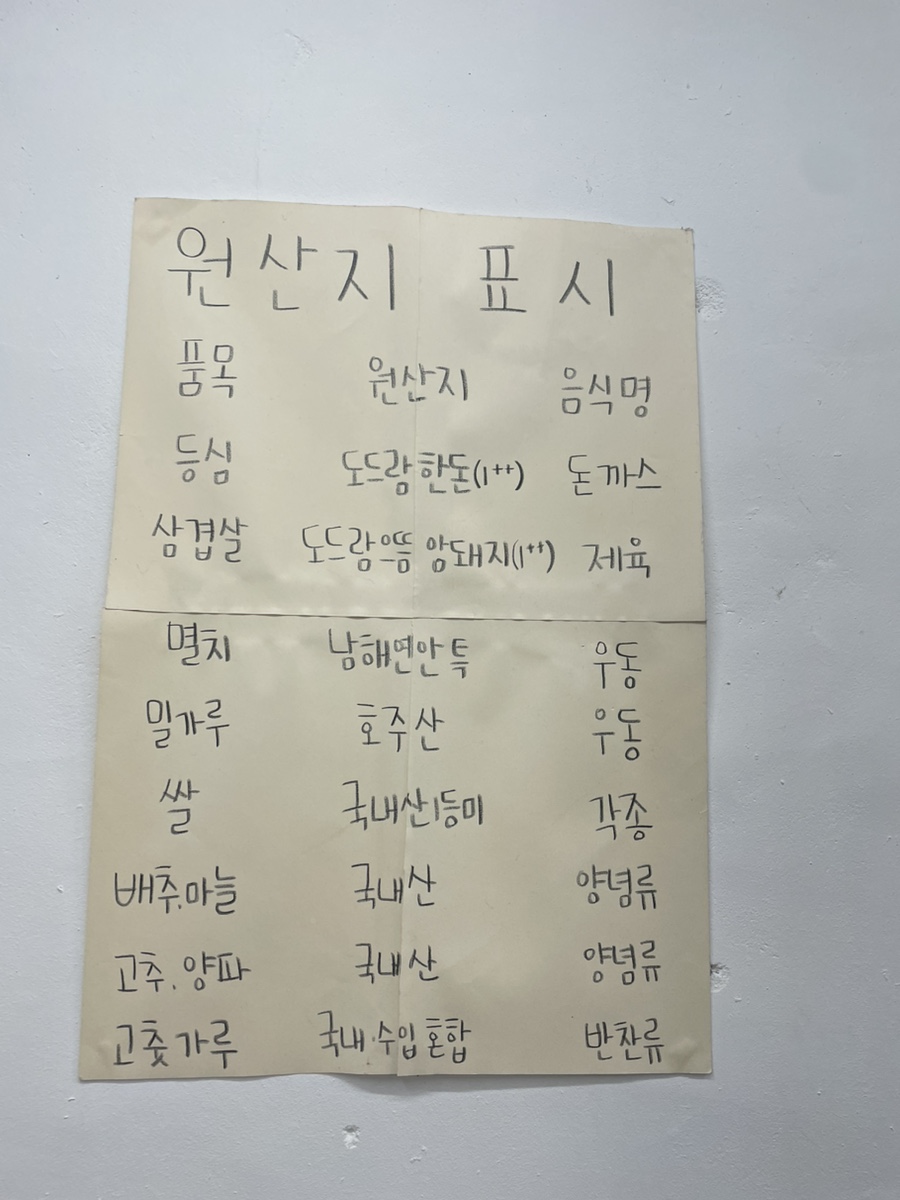 원산지 표시
품목 원산지 음식명
등심 도드람한돈(1++) 돈까스
삼겹살 도드람으뜸 암돼지(1++) 제육
멸치 남해연안특 우동
밀가루 호주산 우동
쌀 국내산1등미 각종
배추.마늘 국내산 양념류
고추.양파 국내산 양념류
고춧가루 국내.수입혼합 반찬류